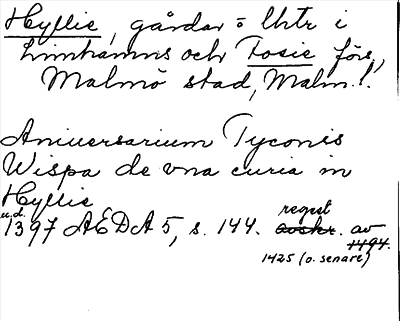 Hyllie, gårdar o lhtr i
Limhamns och Fosie förs,
Malmö stad, Malm.l.
Aniuersarium Tyconis
Wispa de vna curia in
Hyllie
u.d.
1397 AEDA 5, s. 144. regest avskr. av
1494.
1425 (o. senare)